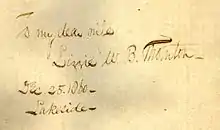 To my dear wife
Lizzie W. B. Thornton_
Dec 25. 1860_
Lakeside_